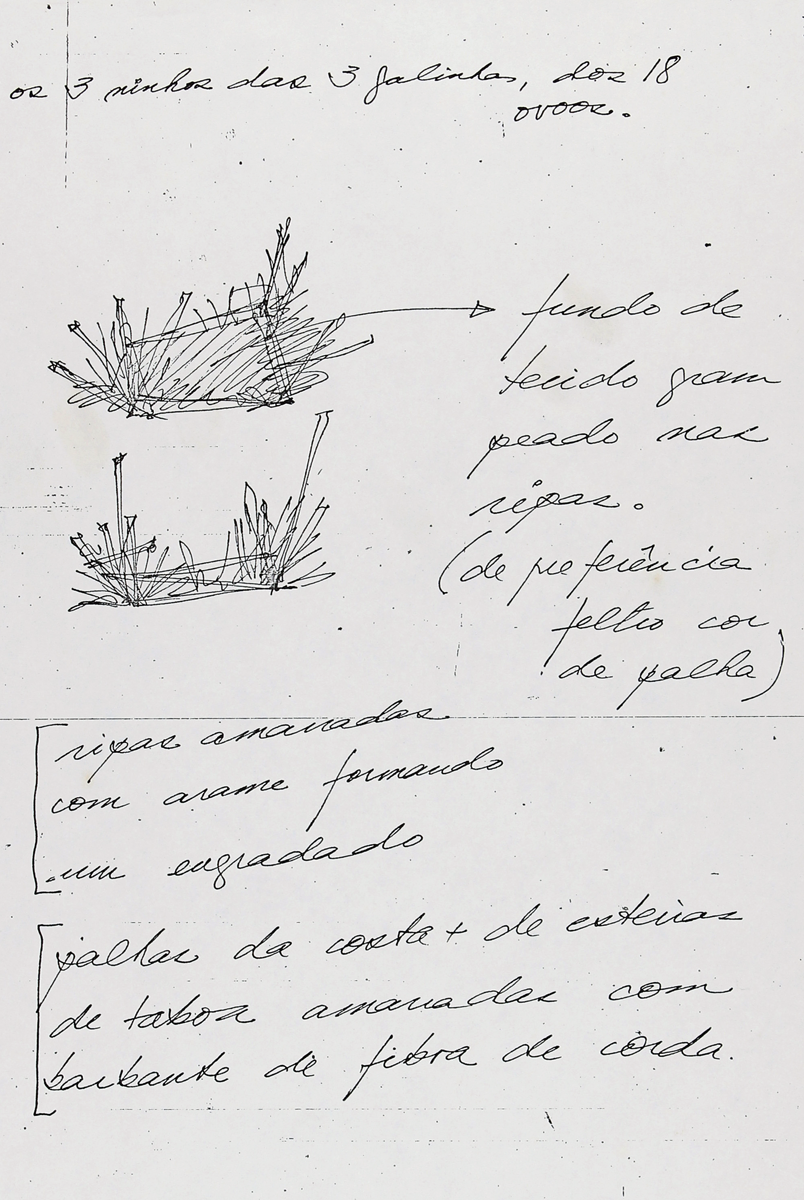 os 3 ninhos das 3 galinhas, dos 18
ovos.
fundo de
tecido gram
peado nas
ripas.
(de preferência
feltro cor
de palha)
ripas amarradas
com arame formando
um engradado
palhas da costa + de esteiras
de taboa amarradas com
barbante de fibra de corda.